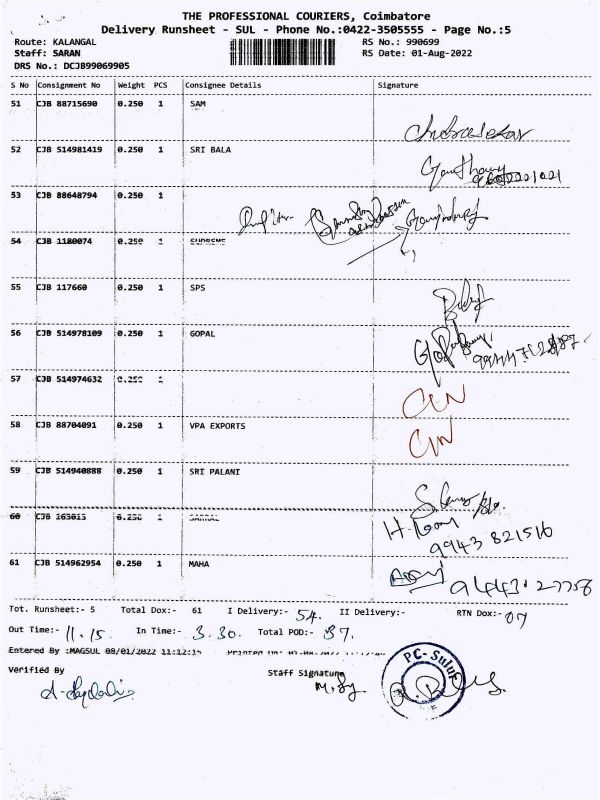 THE PROFESSIONAL COURIERS, Coimbatore
Delivery Runsheet - SUL - Phone No.:0422-3505555 - Page No.:5
Route: KALANGAL RS No.: 990699
Staff: SARAN RS Date: 01-Aug-2022
DRS No.: DCJB99069905
S No Consignment No Weight PCS Consignee Details Signature
51 CJB 88715690 0.250 1 SAM
Chndrasekar
52 CJB 514981419 0.250 1 SRI BALA
53 CJB 88648794 0.250 1
54 CJB 1180074 0.250 1 SUPREME
55 CJB 117660 0.250 1 SPS
56 CJB 514978109 0.250 1 GOPAL
57 CJB 514974632 0.250 1
58 CJB 88704091 0.250 1 VPA EXPORTS
59 CJB 514940888 0.250 1 SRI PALANI
60 CJB 0.250 1
9943 821516
61 CJB 514962954 0.250 1 MAHA
Tot. Runsheet:- 5 Total Dox:- 61 I Delivery:- 54. II Delivery:- RTN Dox:- 07
Out Time:- 11.15. In Time:- 3.30. Total POD:- 37.
Entered By :MAGSUL 08/01/2022 11:12:15 Printed On:
Verified By Staff Signature
PC-Sulur